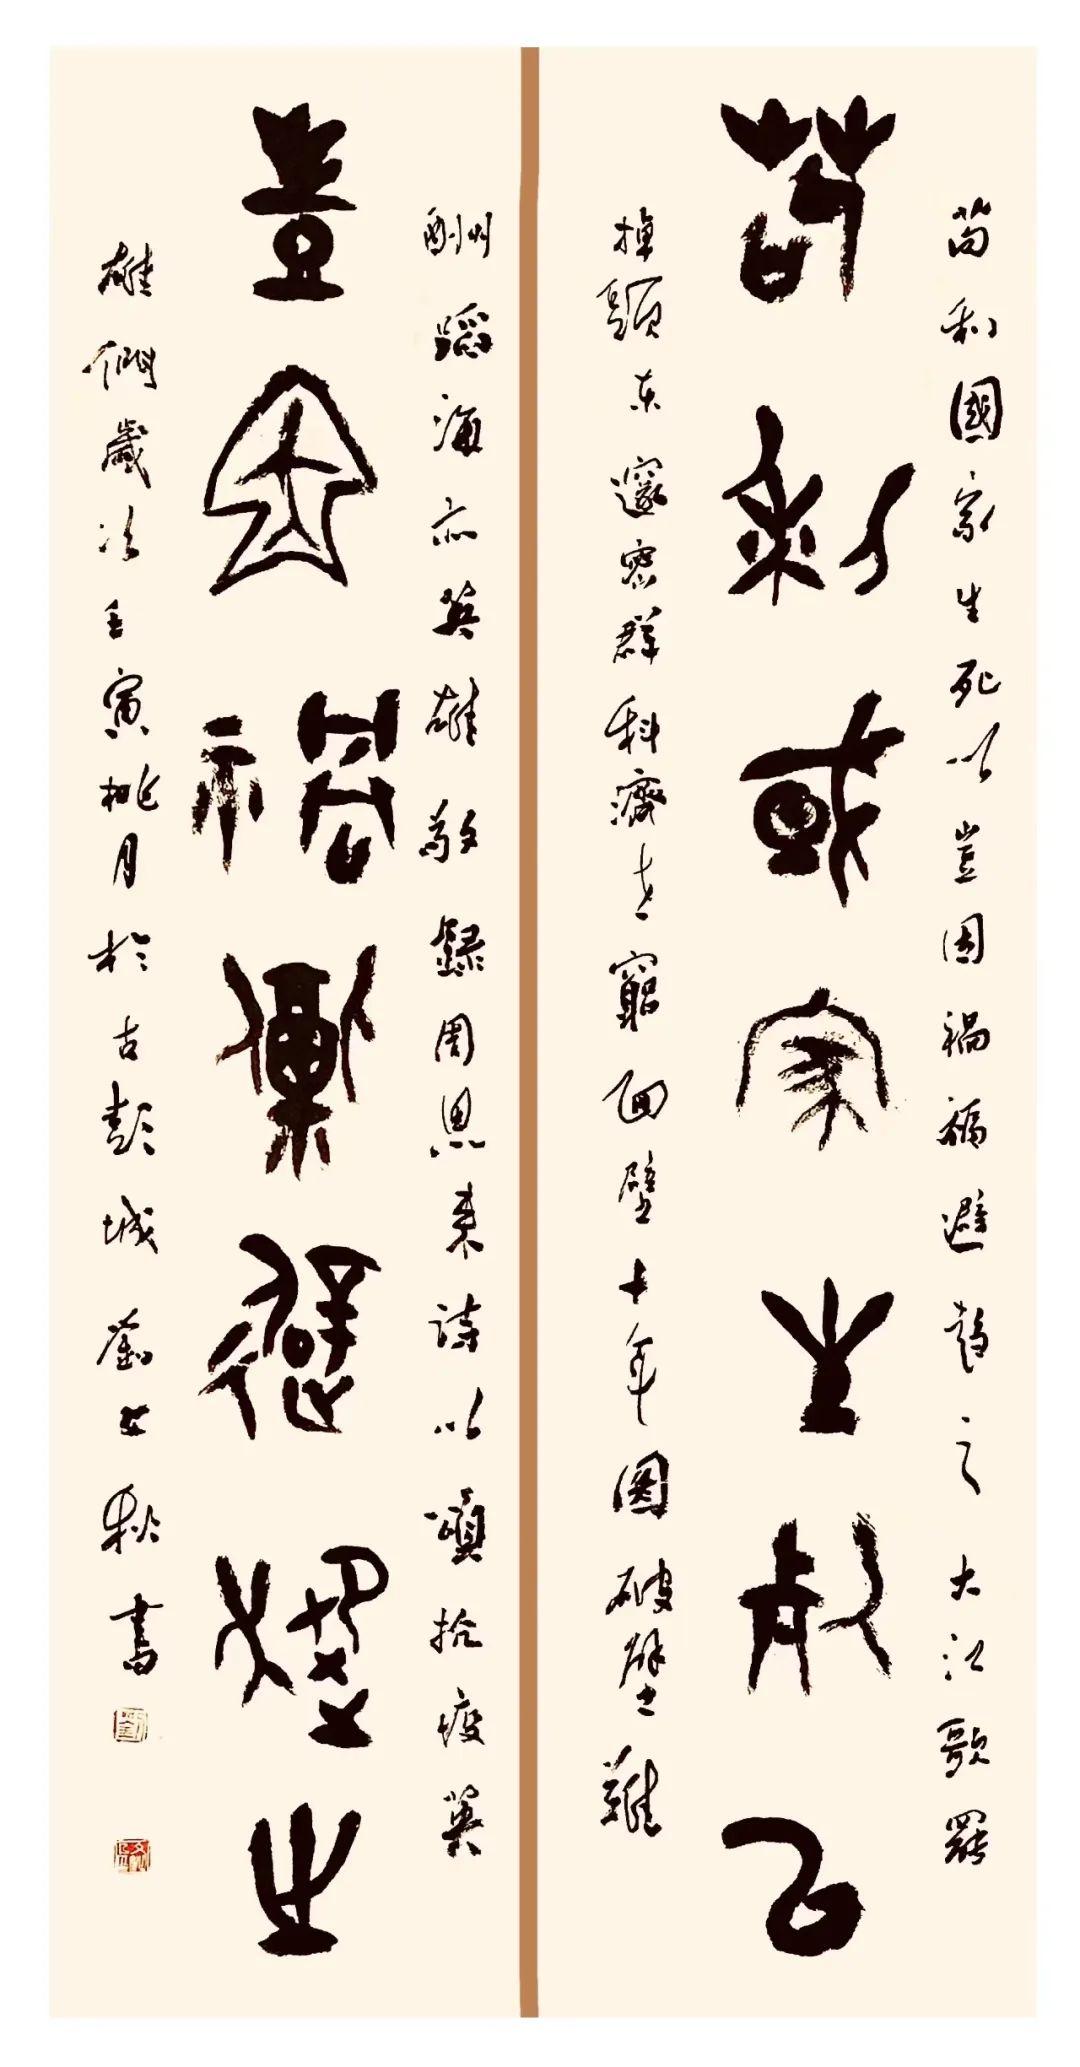 苟利國家生死以豈因禍福避趨之大江歌罷
苟利或家生死以
掉頭東邃密群科濟世窮面壁十年圖破壁難
酬蹈海亦英雄敬錄周恩來詩以頌抗疫英
豈因禍福避趨之
雄們歲次壬寅桃月於古彭城劉秋書
劉